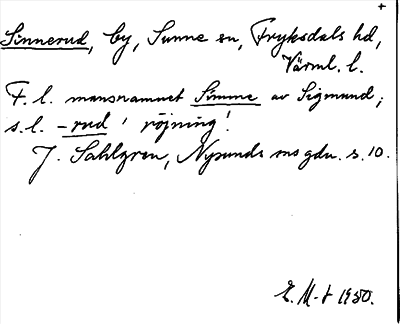 +
Sinnerud, by, Sunne sn, Fryksdals hd,
Värml. l.
F. l. mansnamnet Simme av Sigmund;
s. l. -rud 'röjning'.
J. Sahlgren, Nysunds sns gdn. s. 10.
E. M-t 1930.